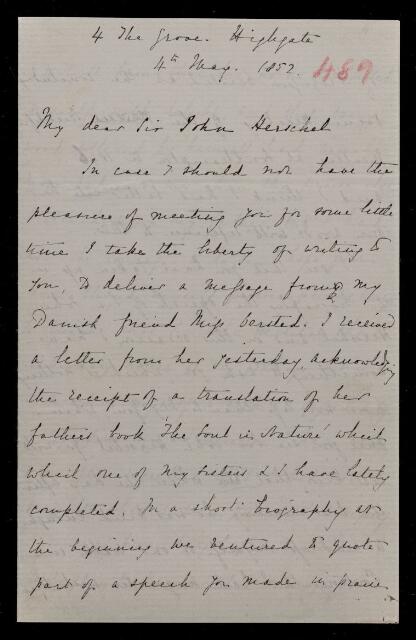 4 The Grove. Highgate
4th May. 1852.
489
My dear Sir John Herschel
In case I should not have the
pleasure of meeting you for some little
time I take the liberty of writing to
you, to deliver a message from my
Danish friend Miss Oersted. I received
a letter from her yesterday, acknowledging
the receipt of a translation of her
fathers book 'The Soul in Nature' which
which one of my sisters & I have lately
completed. In a short biography at
the beginning we ventured to quote
part of a speech you made in praise